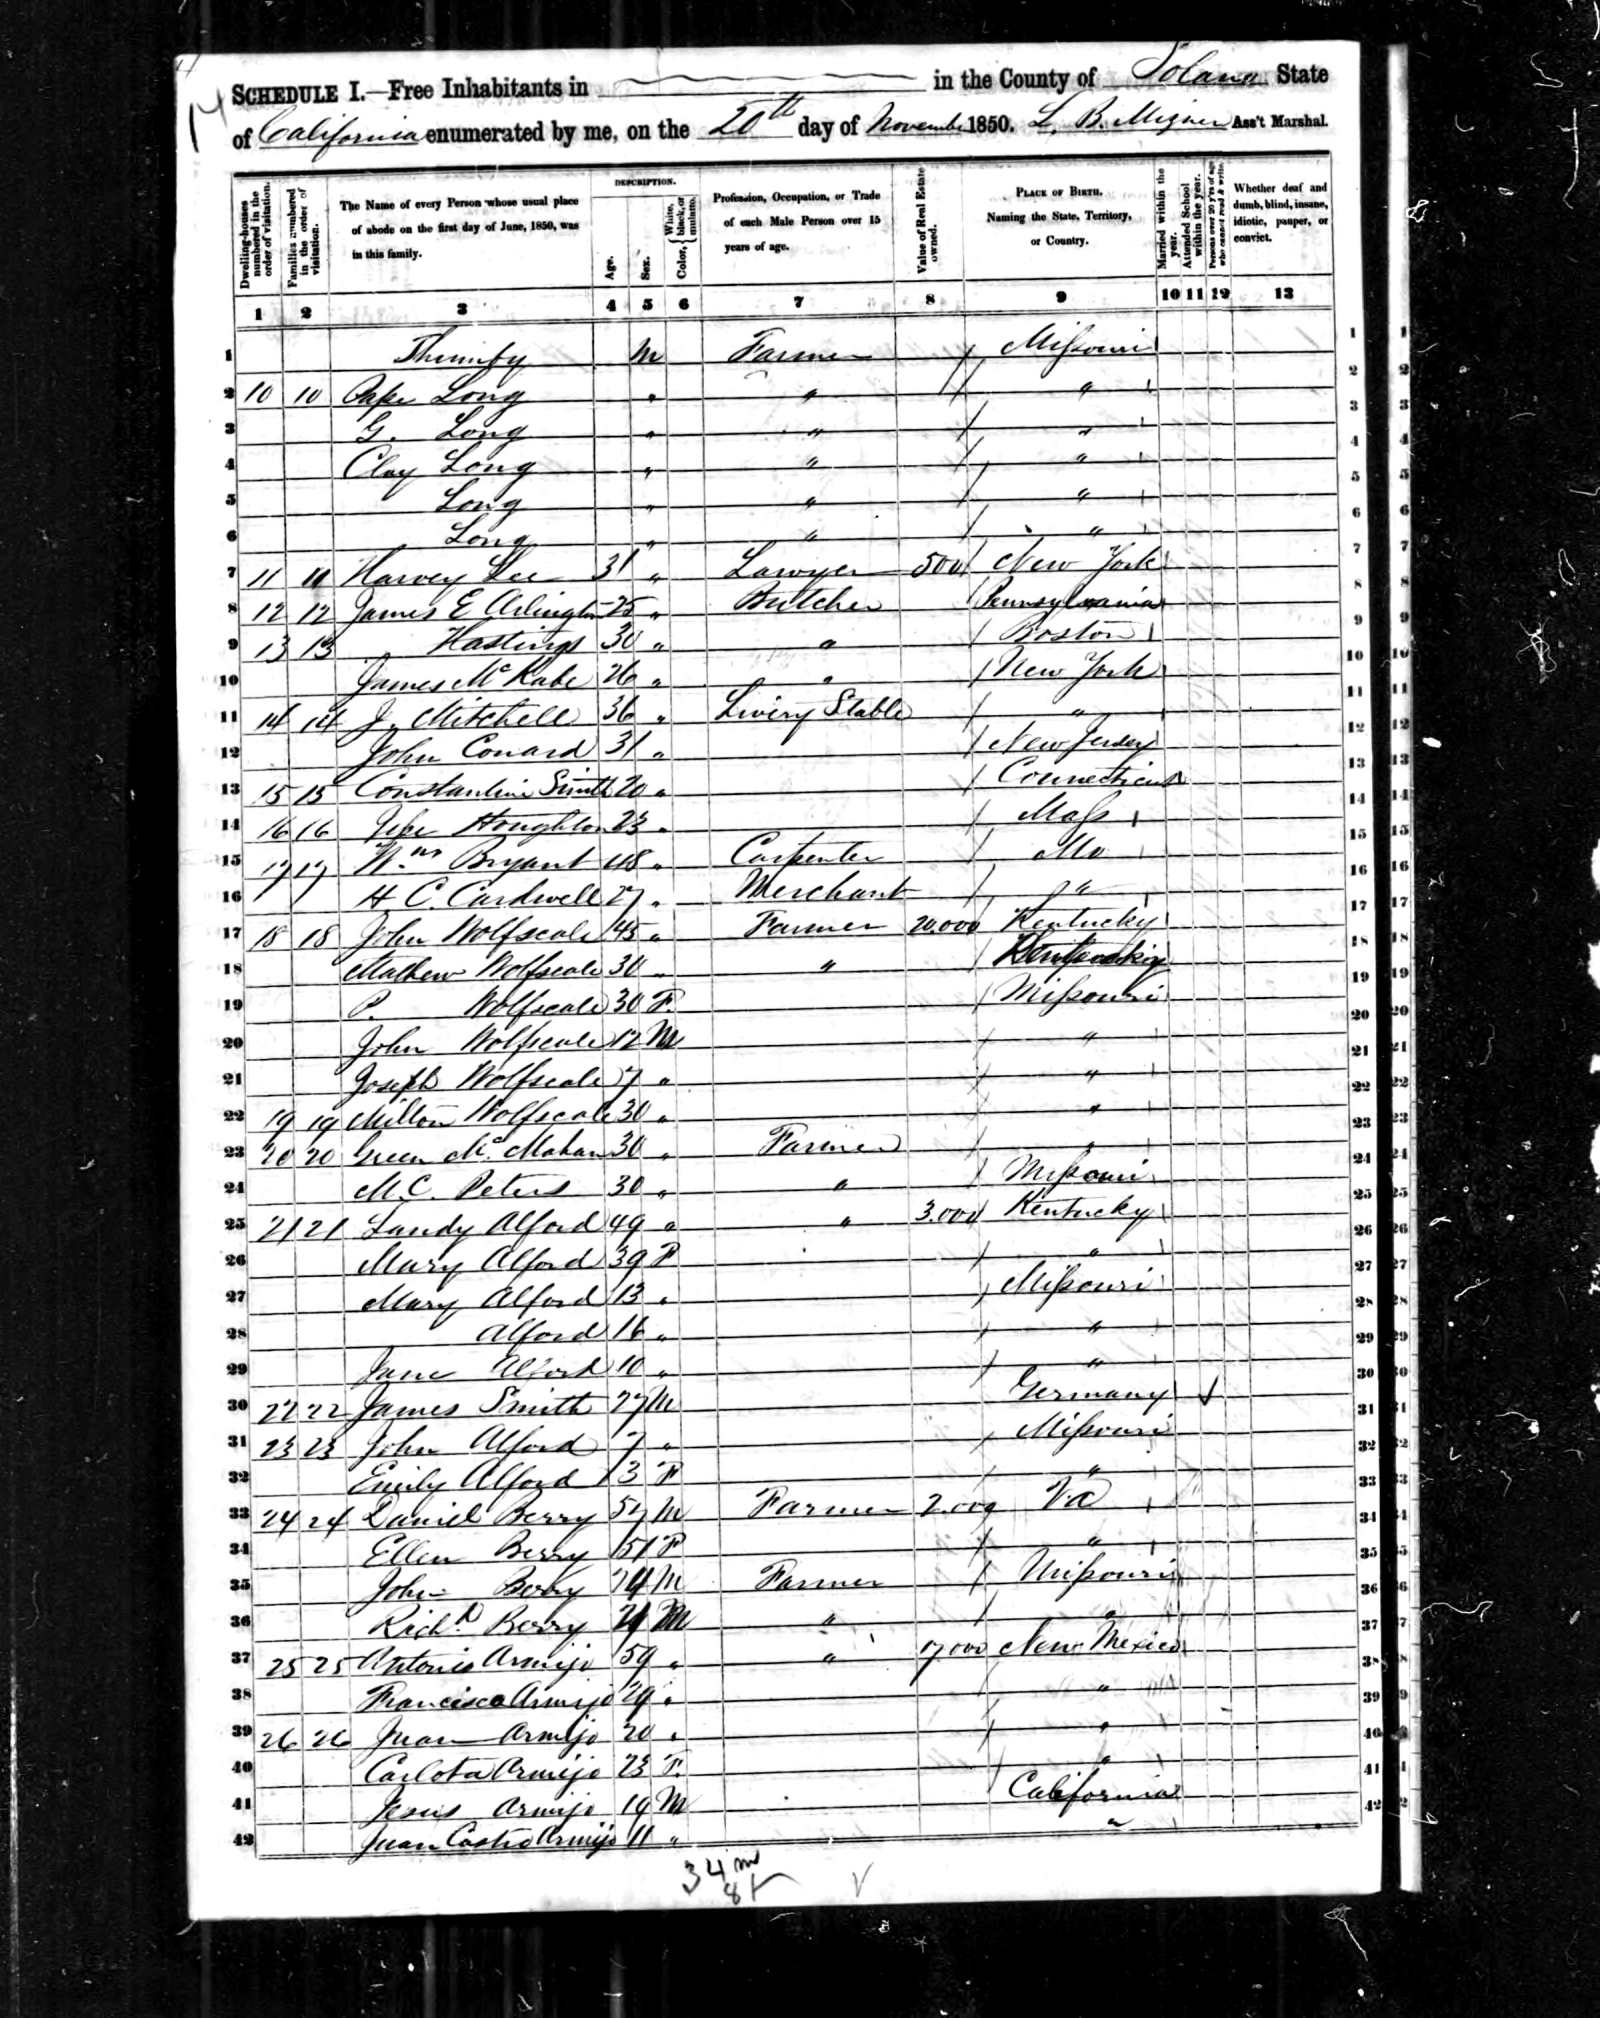 14
SCHEDULE I.—Free Inhabitants in in the County of Solano State
of California enumerated by me, on the 20th day of November 1850. L. B. Mizner Ass't Marshal.
Dwelling-houses numbered in the order of visitation.
Families numbered in the order of visitation.
The Name of every Person whose usual place of abode on the first day of June, 1850, was in this family.
DESCRIPTION.
Age.
Sex.
Color, { White, black, or mulatto.
Profession, Occupation, or Trade of each Male Person over 15 years of age.
Value of Real Estate owned.
PLACE OF BIRTH. Naming the State, Territory, or Country.
Married within the year.
Attended School within the year.
Persons over 20 y'rs of age who cannot read & write.
Whether deaf and dumb, blind, insane, idiotic, pauper, or convict.
1 2 3 4 5 6 7 8 9 10 11 12 13
1 M Farmer Missouri 1
2 10 10 Long " " " 2
3 G. Long " " " 3
4 Clay Long " " " 4
5 Long " " " 5
6 Long " " " 6
7 11 11 Harvey Lee 31 " Lawyer 500 New York 7
8 12 12 James E Arlington 25 " Butcher Pennsylvania 8
9 13 13 Hastings 30 " " Boston 9
10 James McKabe 26 " " New York 10
11 14 14 J. Mitchell 36 " Livery Stable " 11
12 John Conard 31 " New Jersey 12
13 15 15 Constantine Smith 20 " Connecticut 13
14 16 16 Houghton 23 " Mass 14
15 17 17 Wm Bryant 48 " Carpenter Mo 15
16 H C. Cardwell 27 " Merchant " 16
17 18 18 John Wolfscale 45 " Farmer 20.000 Kentucky 17
18 Mathew Wolfscale 30 " " 18
19 P. Wolfscale 30 F. Missouri 19
20 John Wolfscale 12 M " 20
21 Joseph Wolfscale 7 " " 21
22 19 19 Milton Wolfscale 30 " " 22
23 20 20 Green Mc Mahan 30 " Farmer " 23
24 M. C. Peters 30 " " Missouri 24
25 21 21 Landy Alford 49 " " 3.000 Kentucky 25
26 Mary Alford 39 F " 26
27 Mary Alford 13 " Missouri 27
28 Alford 16 " " 28
29 Jane Alford 10 " " 29
30 22 22 James Smith 27 M Germany 30
31 23 23 John Alford 7 " Missouri 31
32 Emily Alford 3 F " 32
33 24 24 Daniel Berry 57 M Farmer 2.000 Va 33
34 Ellen Berry 51 F " 34
35 John Berry 24 M Farmer Missouri 35
36 Richd Berry 21 M " " 36
37 25 25 Antonio Armijo 59 " " 7000 New Mexico 37
38 Francisco Armijo 29 " " 38
39 26 26 Juan Armijo 20 " " 39
40 Carlota Armijo 23 F. " 40
41 Jesus Armijo 19 M California 41
42 Juan Castro Armijo 11 " " 42
34 m
8 f